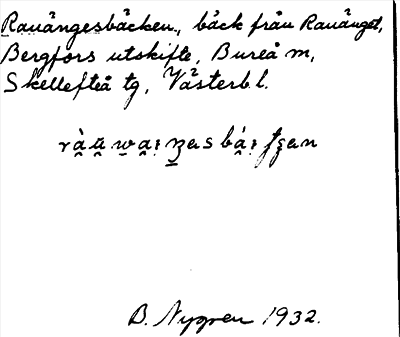 Rauängesbäcken, bäck från Rauänget,
Bergfors utskifte, Bureå m,
Skellefteå tg, Västerb.l.
B. Nygren 1932.